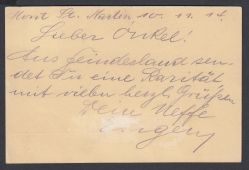 Mont St. Martin, 10. 11. 14.
Lieber Onkel!
Aus Feindesland sen-
det Dir eine Rarität
mit vielen herzl. Grüßen
Dein Neffe
Eugen